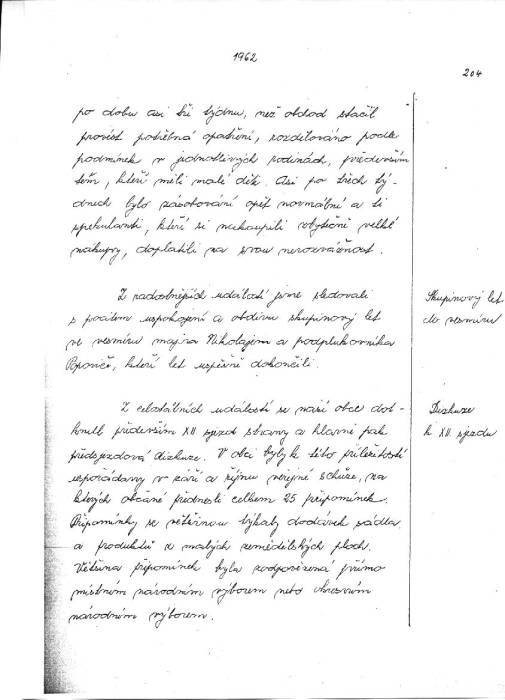 1962
204
po dobu asi tří týdnu, než obchod stačil
provést potřebná opatření, rozdělováno podle
podmínek v jednotlivých rodinách, především
těm, kteří měli malé děti. Asi po třech tý-
dnech bylo zásobování opět normální a ti
spekulanti, kteří si nakoupili zbytečně velké
nákupy, doplatili na svou nerozvážnost.
Z radostnějších událostí jsme sledovali
s pocitem uspokojení a obdivu skupinový let
ve vesmíru majora Nikolajem a podplukovníka
Popoviče, kteří let uspěšně dokončili.
Skupinový let
do vesmíru
Z celostátních událostí se naší obce dot-
knull především XII. sjezd strany a hlavně pak
předsjezdová diskuze. V obci byly k této příležitosti
uspořádány v září a říjnu veřejné schůze, na
kterých občané přednesli celkem 25 připomínek.
Připomínky se většinou týkaly dodávek sádla
a produktů z malých zemědělských ploch.
Většina připomínek byla zodpovězená přímo
místním národním výborem nebo okresním
národním výborem.
Diskuze
k XII. sjezdu